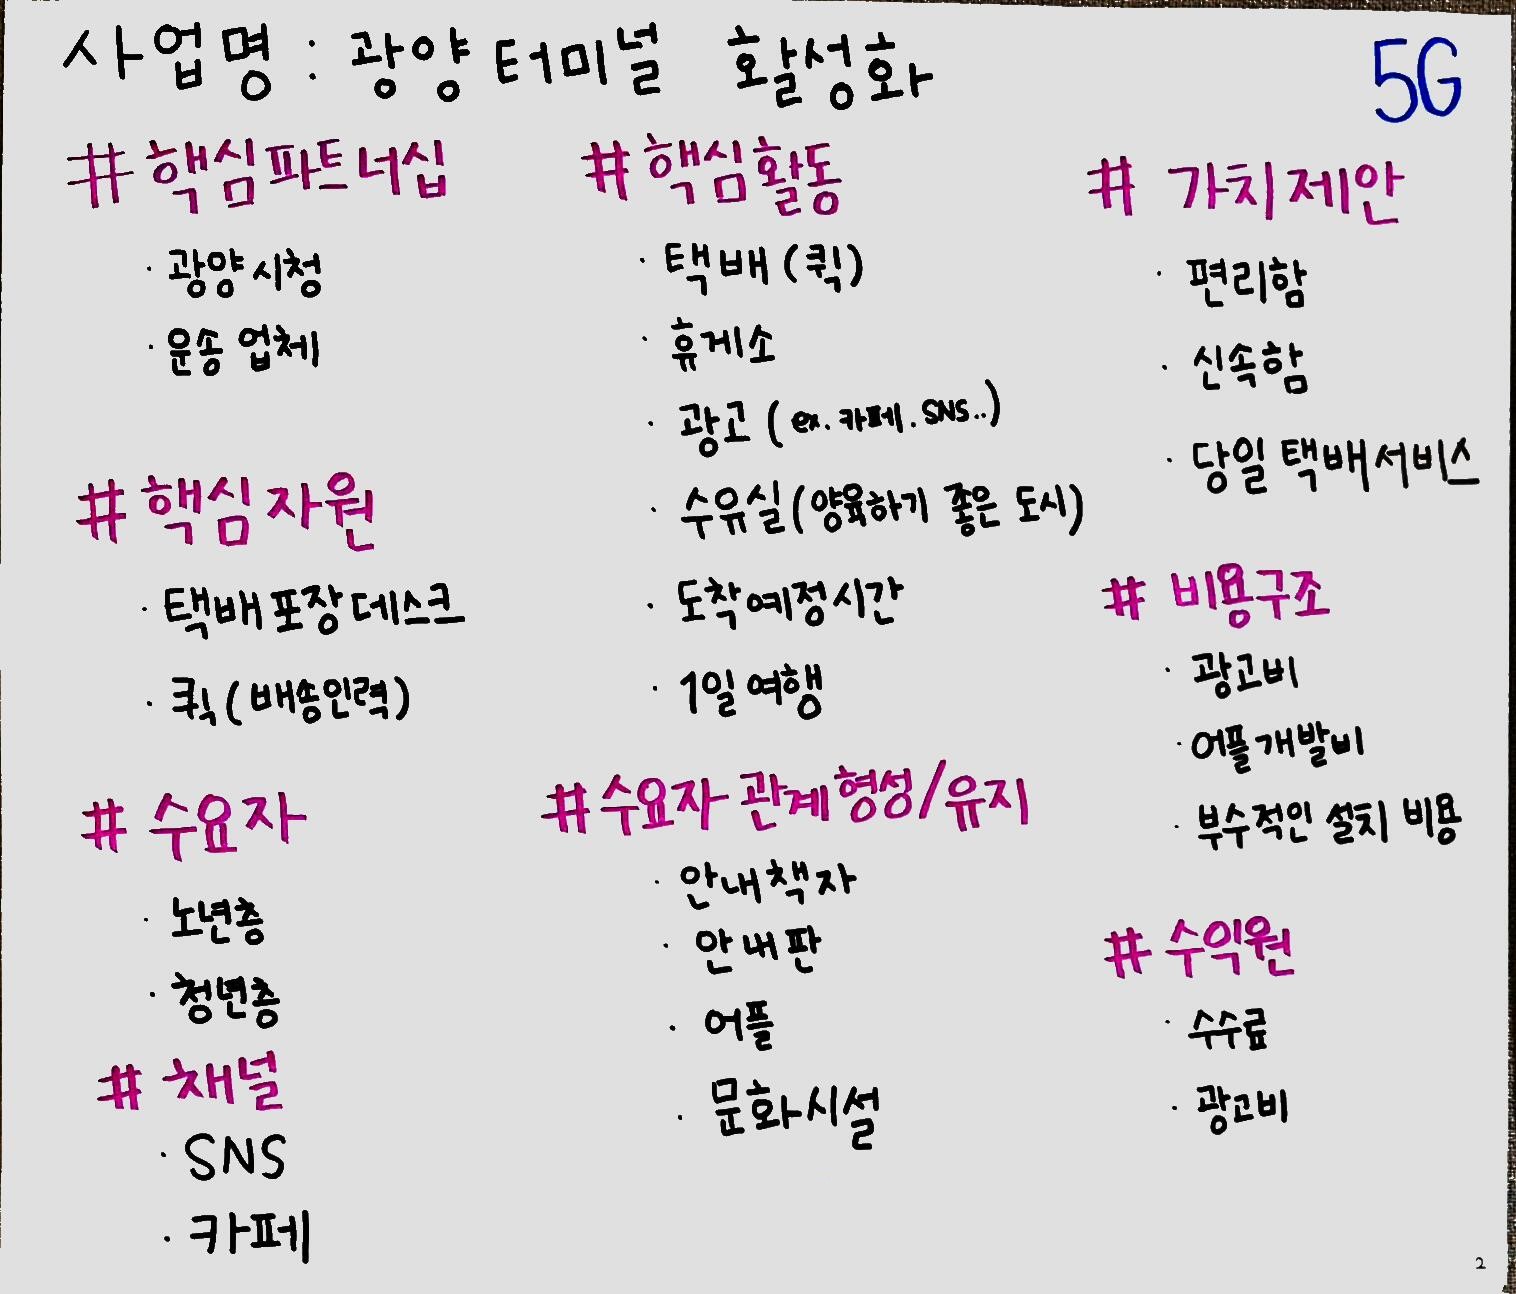 사업명 : 광양터미널 활성화
5G
# 핵심파트너십
· 광양시청
· 운송 업체
# 핵심자원
· 택배포장데스크
· 퀵(배송인력)
# 수요자
· 노년층
· 청년층
# 채널
· SNS
· 카페
# 핵심활동
· 택배(퀵)
· 휴게소
· 광고(ex.카페.SNS..)
· 수유실(양육하기 좋은 도시)
· 도착예정시간
· 1일여행
# 수요자 관계형성/유지
· 안내책자
· 안내판
· 어플
· 문화시설
# 가치제안
· 편리함
· 신속함
· 당일택배서비스
# 비용구조
· 광고비
· 어플개발비
· 부수적인 설치 비용
# 수익원
· 수수료
· 광고비
2